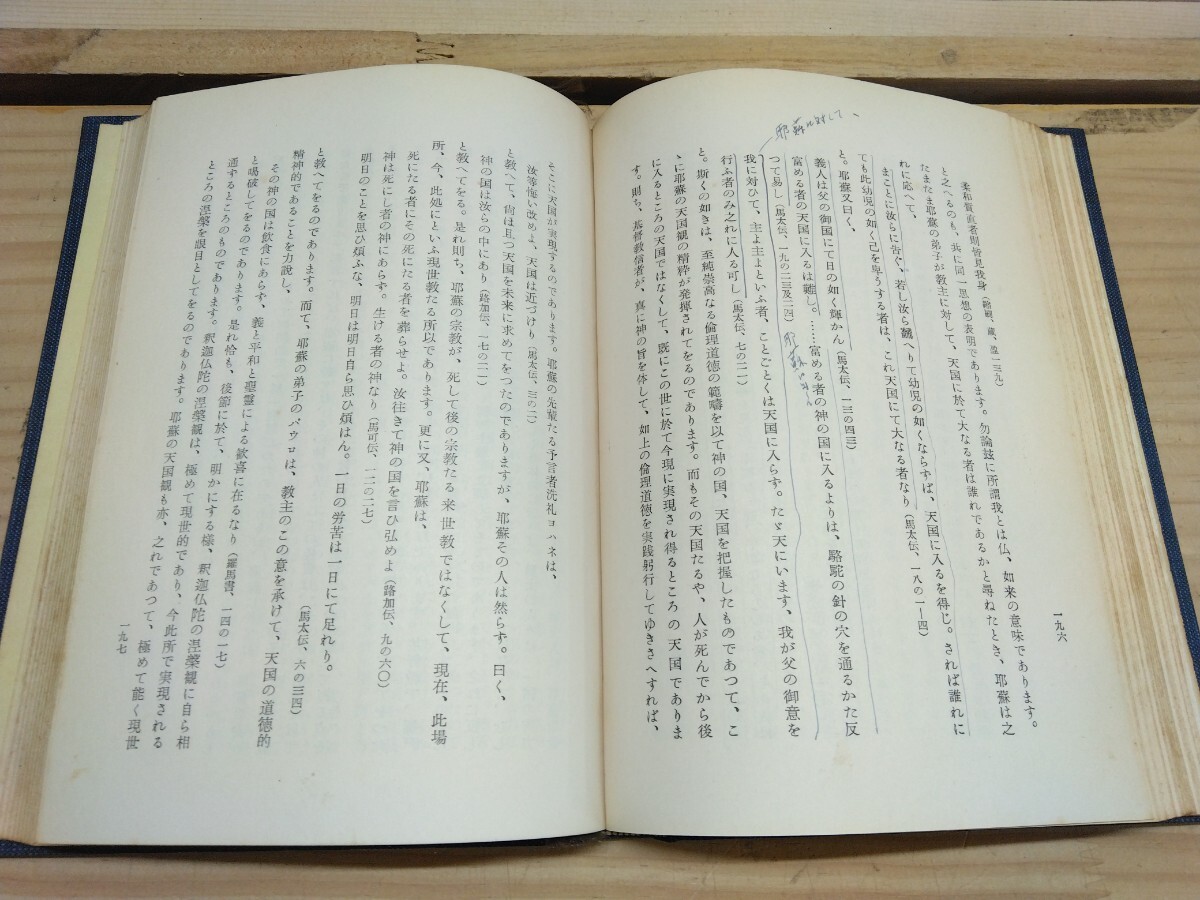 一九六
柔和質直者則皆見我身
と之へるのも、共に同一思想の表明であります。勿論玆に所謂我とは仏、如来の意味であります。
たまたま耶蘇の弟子が教主に対して、天国に於て大なる者は誰れであるかと尋ねたとき、耶蘇は之
れに応へて、
まことに汝らに告ぐ、若し汝ら飜へりて幼児の如くならずば、天国に入るを得じ。されば誰れに
ても此幼児の如く己を卑うする者は、これ天国にて大なる者なり(馬太伝、一八の一―四)
と。耶蘇又曰く、
義人は父の御国にて日の如く輝かん(馬太伝、一三の四三)
富める者の天国に入るは難し。……富める者の神の国に入るよりは、駱駝の針の穴を通るかた反
つて易し(馬太伝、一九の二三及二四)
耶蘇に対して、
我に対ひて、主よ主よといふ者、ことごとくは天国に入らず。たゞ天にいます、我が父の御意を
行ふ者のみ之れに入る可し(馬太伝、七の二一)
と。斯くの如きは、至純崇高なる倫理道徳の範疇を以て神の国、天国を把握したものであつて、こ
ゝに耶蘇の天国観の精粋が発揮されてをるのであります。而もその天国たるや、人が死んでから後
に入るところの天国ではなくして、既にこの世に於て今現に実現され得るところの天国でありま
す。則ち、基督教信者が、真に神の旨を体して、如上の倫理道徳を実践躬行してゆきさへすれば、
そこに天国が実現するのであります。耶蘇の先輩たる予言者洗礼ヨハネは、
汝等悔い改めよ、天国は近づけり(馬太伝、三の二)
と教へて、尚ほ且つ天国を未来に求めてをつたのでありますが、耶蘇その人は然らず。曰く、
神の国は汝らの中にあり(路加伝、一七の二一)
と教へてをる。是れ則ち、耶蘇の宗教が、死して後の宗教たる来世教ではなくして、現在、此場
所、今、此処にといふ現世教たる所以であります。更に又、耶蘇は、
死にたる者にその死にたる者を葬らせよ。汝往きて神の国を言ひ弘めよ(路加伝、九の六〇)
神は死にし者の神にあらず。生ける者の神なり(馬可伝、一二の二七)
明日のことを思ひ煩ふな、明日は明日自ら思ひ煩はん。一日の労苦は一日にて足れり。
(馬太伝、六の三四)
と教へてをるのであります。而て、耶蘇の弟子のパウロは、教主のこの意を承けて、天国の道徳的
精神的であることを力説し、
その神の国は飲食にあらず、義と平和と聖霊による歓喜に在るなり(羅馬書、一四の一七)
と喝破してをるのであります。是れ恰も、後節に於て、明かにする様、釈迦仏陀の涅槃観に自ら相
通ずるところのものであります。釈迦仏陀の涅槃観は、極めて現世的であり、今此所で実現される
ところの涅槃を眼目としてをるのであります。耶蘇の天国観も亦、之れであつて、極めて能く現世
一九七